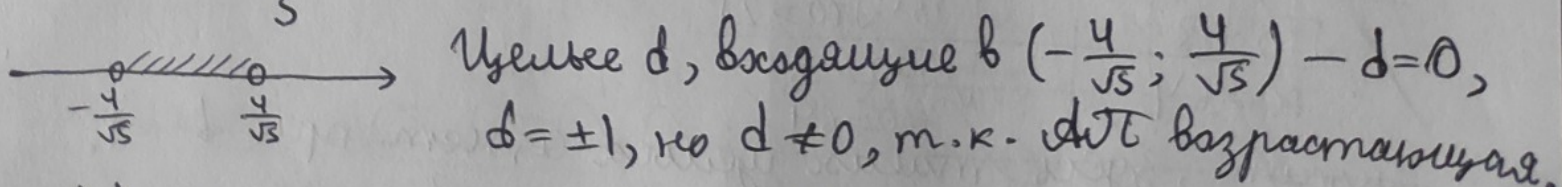 5
Целые d, входящие в (-4/√5; 4/√5) – d=0,
-4/√5 4/√5
d=±1, но d≠0, т.к. АП возрастающая.